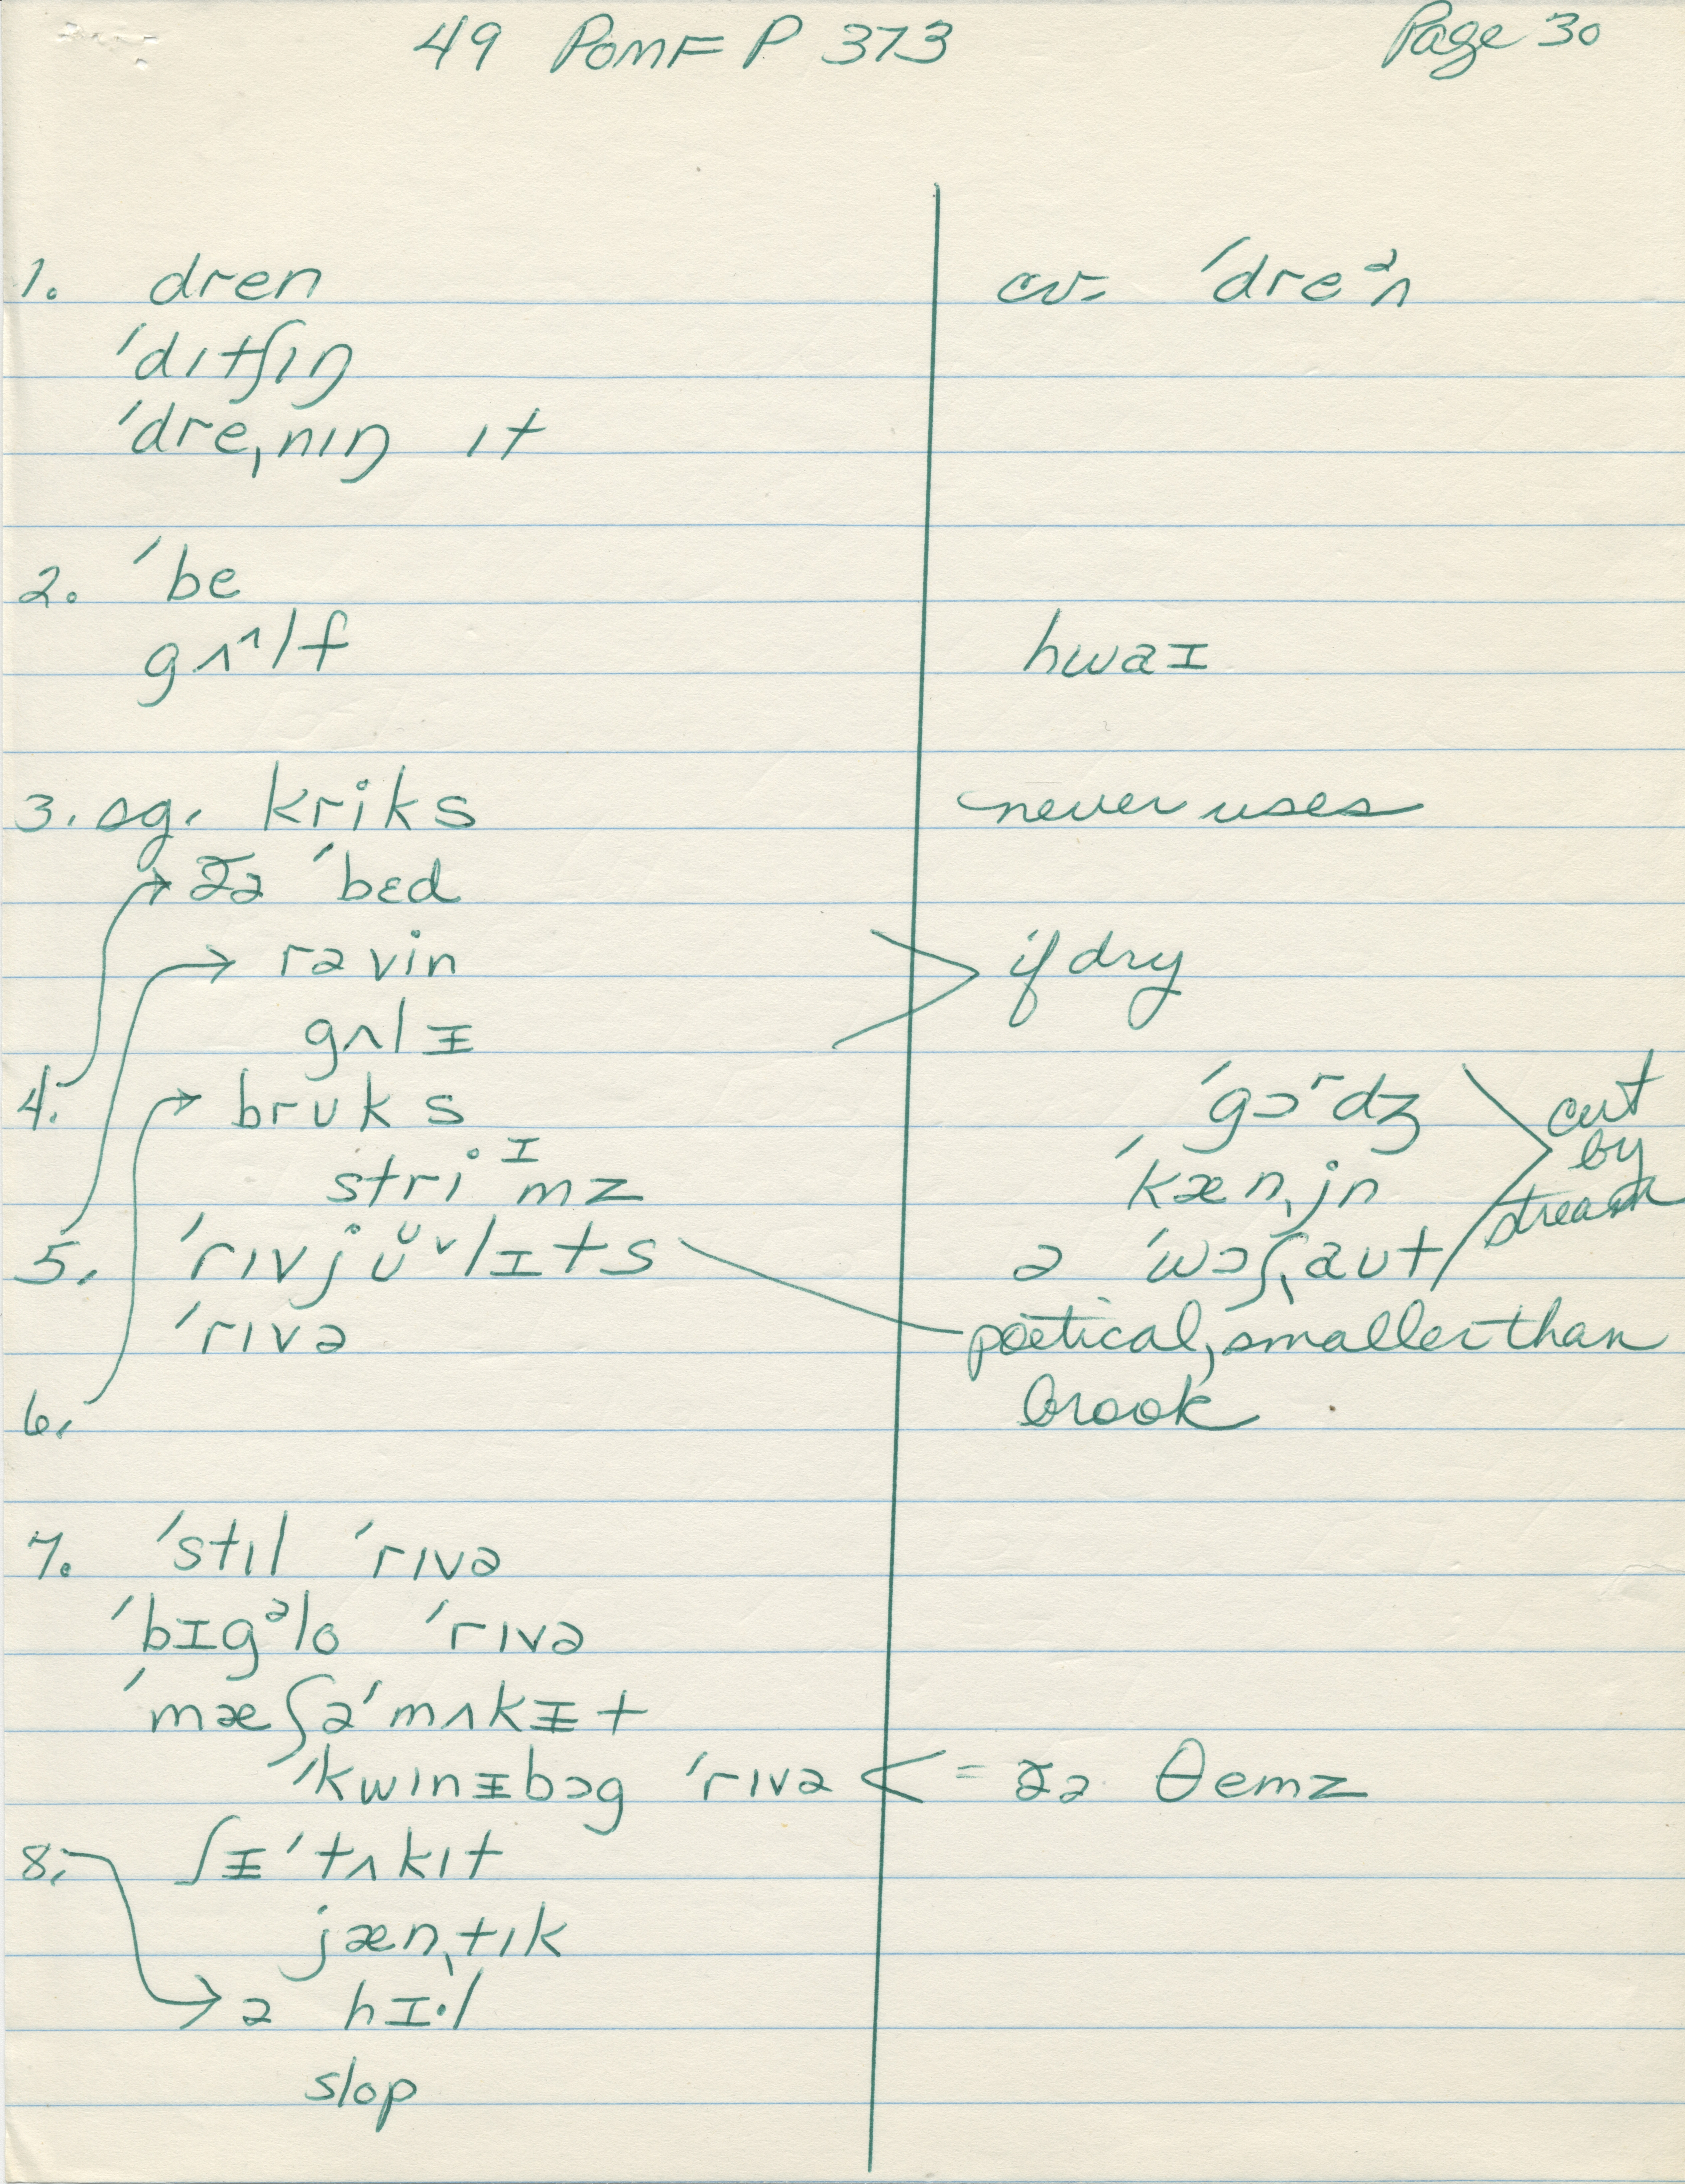 49 PomF P 373 Page 30
1. dren cv. ˈdreᵊn
ˈdɪtʃɪŋ
ˈdreˌnɪŋ ɪt
2. ˈbe
gʌ^lf hwaɪ
3. sg. kriks never uses
ðə ˈbɛd
ravin if dry
gʌlɪ
4. bruks ˈgɔʳdʒ cut
striᴵmz ˈkænˌjn by
stream
5. ˈrɪvjŭᵛlɪts ə ˈwɔʃˌaʊt
ˈrɪvə poetical, smaller than
6. brook
7. ˈstɪl ˈrɪvə
ˈbɪgᵊlo ˈrɪvə
ˈmæʃəˈmʌkᵻt
ˈkwɪnᵻbɔg ˈrɪvə < = ðə θemz
8. ʃᵻˈtʌkɪt
jænˌtɪk
ə hɪ·l
slop